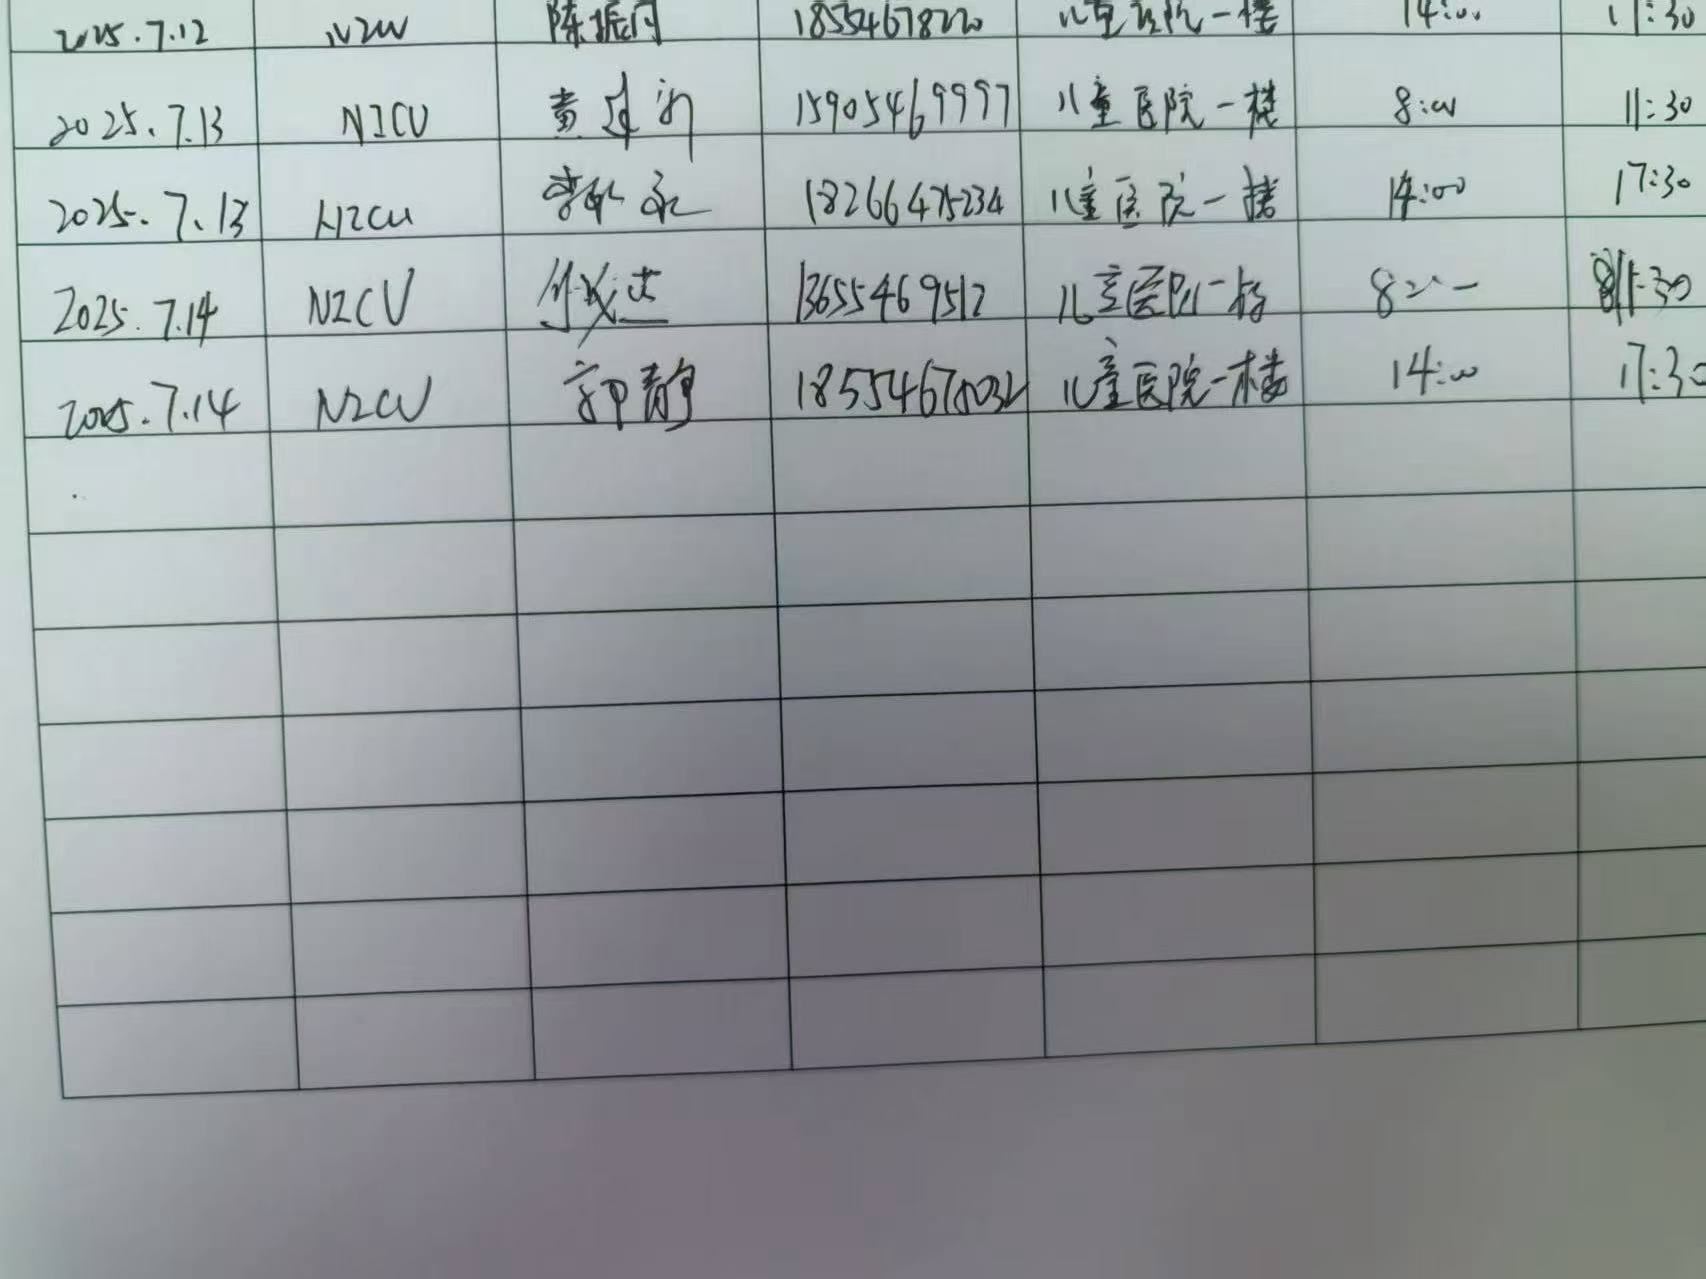 2025.7.12 NICU 陈振 18554678220 儿童医院一楼 14:00 17:30
2025.7.13 NICU 黄 15905469997 儿童医院一楼 8:00 11:30
2025.7.13 NICU 李 永 18266475234 儿童医院一楼 14:00 17:30
2025.7.14 NICU 13655469512 儿童医院一楼 8:00 11:30
2025.7.14 NICU 郭静 儿童医院一楼 14:00 17:30